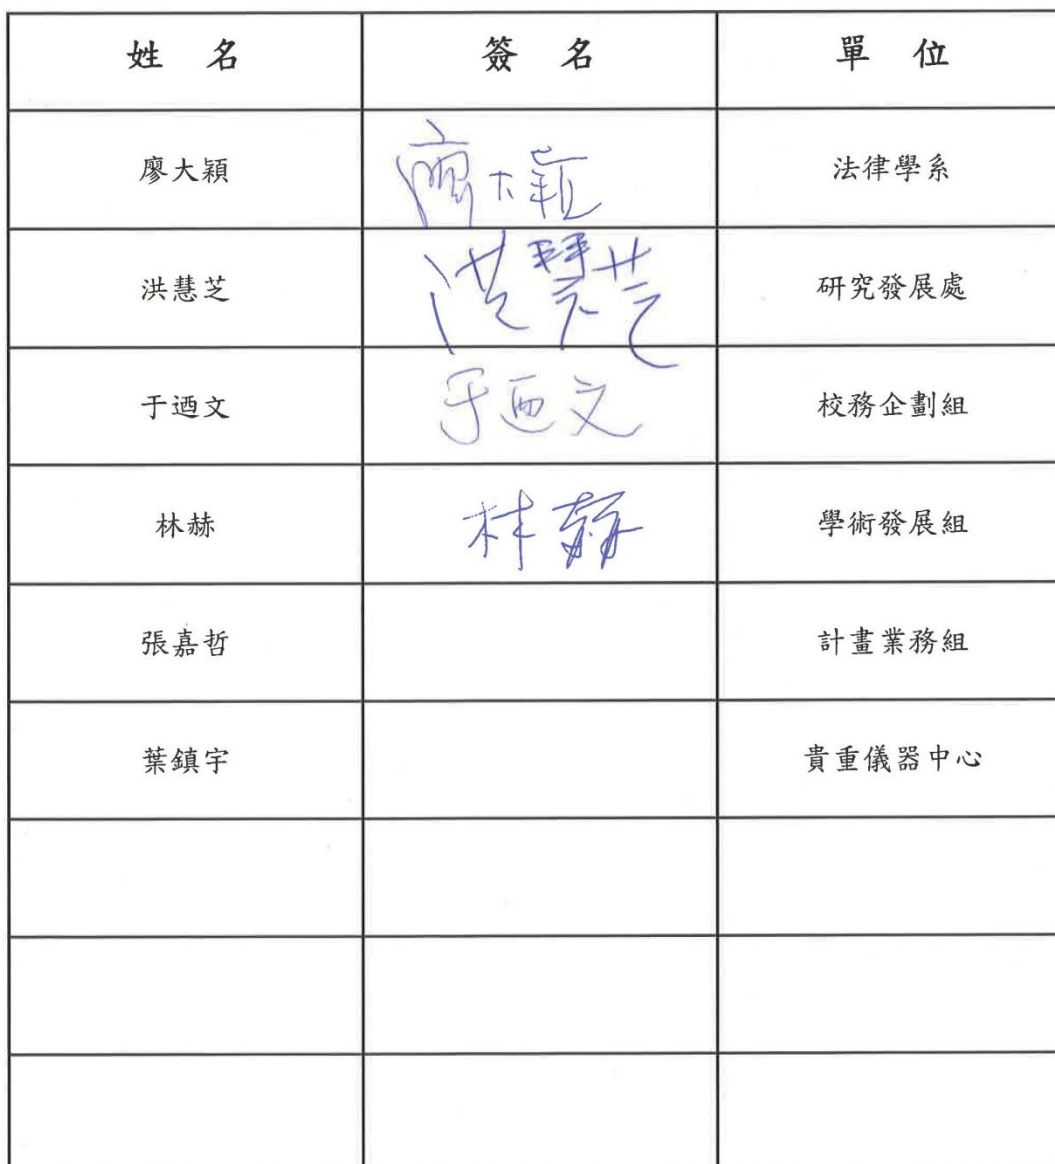 姓 名 簽 名 單 位
廖大穎 廖大穎 法律學系
洪慧芝 洪慧芝 研究發展處
于逎文 于逎文 校務企劃組
林赫 林赫 學術發展組
張嘉哲 計畫業務組
葉鎮宇 貴重儀器中心